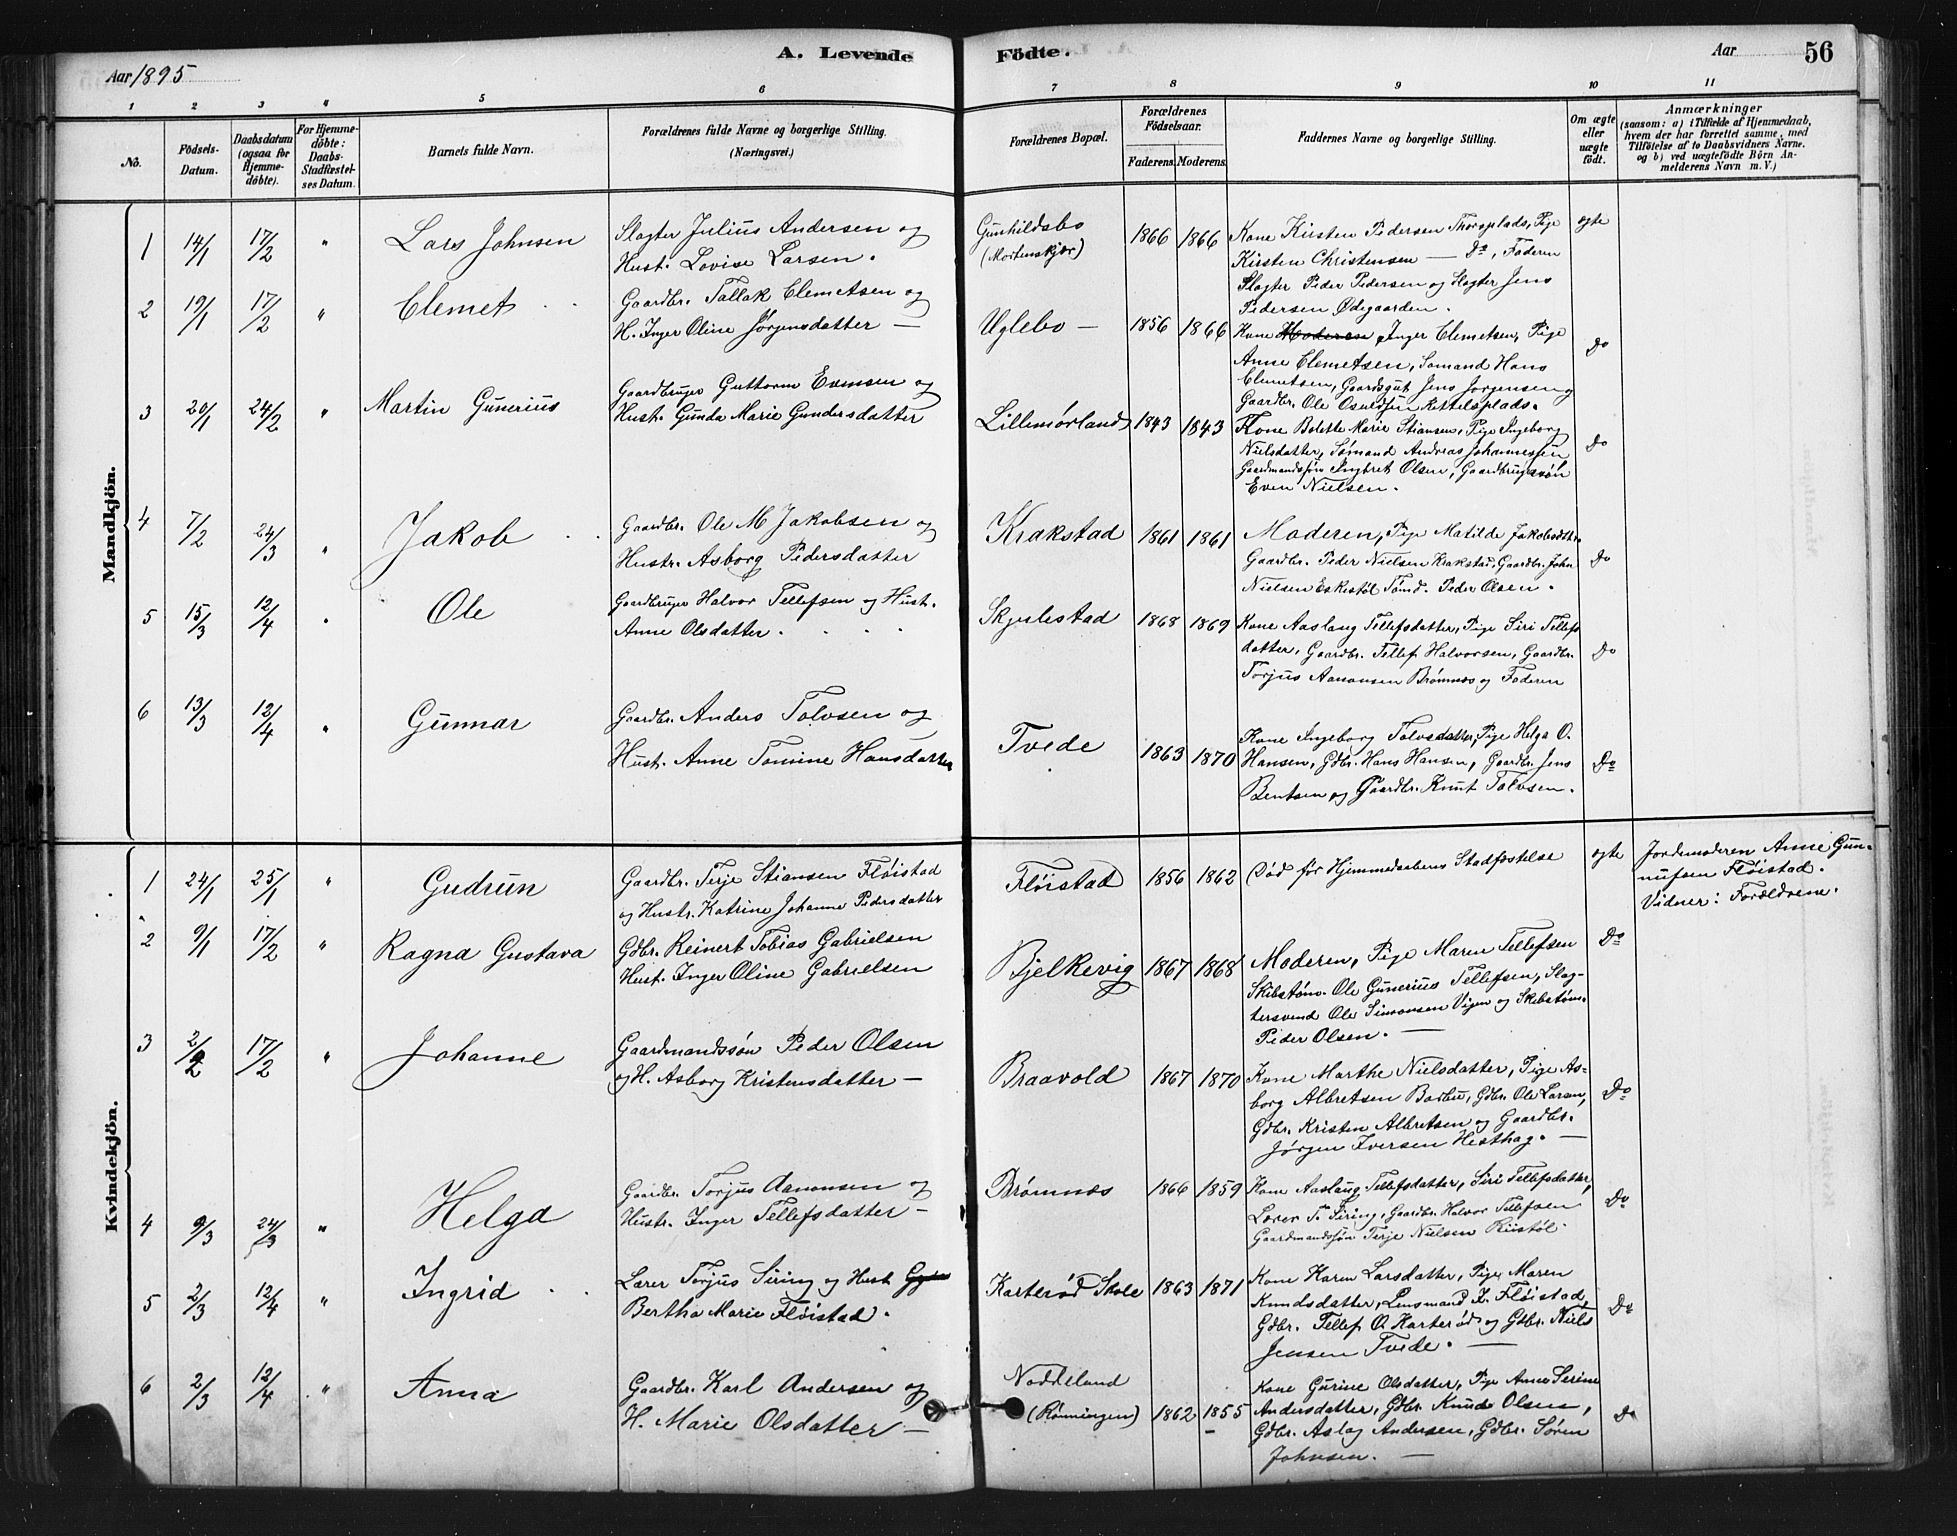 Aar 1895
A. Levende
Födte.
Aar
56
1 2 3 4 5 6 7 8 9 10 11
Nô.
Födsels-Datum.
Daabsdatum (ogsaa for Hjemme-döbte).
For Hjemme-döbte: Daabs-Stadfæstel-ses Datum.
Barnets fulde Navn.
Forældrenes fulde Navne og borgerlige Stilling.
(Næringsvei.)
Forældrenes Bopæl.
Forældrenes Födselsaar.
Faderens. Moderens.
Faddernes Navne og borgerlige Stilling.
Om ægte eller uægte födt.
Anmærkninger
(saasom: a) i Tilfælde af Hjemmedaab,
hvem der har forrettet samme, med
Tilföielse af to Daabsvidners Navne,
og b) ved uægtefödte Börn An-
melderens Navn m. V.)
Mandkjön.
1 14/1 17/2 " Lars Johnsen
Slagter Julius Andersen og
Hust. Lovise Larsen.
Gunhildsbo
(Mortenskjær)
1866 1866
Kone Kirsten Pedersen Thorsplads, Pige
Kirsten Christensen — Do, Faderen
Slagter Peder Pedersen og Slagter Jens
Pedersen Ødegaarden.
ægte
2 19/1 17/2 " Clemet
Gaardbr. Tallak Clemetsen og
H. Inger Oline Jørgensdatter —
Uglebo —
1856 1866
Kone Moderen, Inger Clemetsen, Pige
Anne Clemetsen, Sømand Hans
Clemetsen, Gaardsgut Jens Jørgensen og
Gaardbr. Ole Osuldsen Rettelsplads.
Do
3 20/1 24/2 " Martin Gunerius
Gaardbruger Guttorm Evensen og
Hust. Gunda Marie Gundersdatter
Lillemørland
1843 1843
Kone Bolette Marie Stiansen, Pige Ingeborg
Nielsdatter, Sømand Andreas Johannesen
Gaardmandssøn Ingbret Olsen, Gaardbrugersøn
Even Nielsen.
Do
4 7/2 24/3 " Jakob
Gaardbr. Ole M Jakobsen og
Hustr. Asborg Pedersdatter
Krakstad
1861 1861
Moderen, Pige Matilde Jakobsdtr.
Gaardbr. Peder Nielsen Krakstad, Gaardbr. John
Nielsen Eskestøl Tømd. Peder Olsen.
Do
5 15/3 12/4 " Ole
Gaardbruger Halvor Tellefsen og Hust.
Anne Olsdatter.
Skjulestad
1868 1869
Kone Aaslaug Tellefsdatter, Pige Siri Tellefs
datter, Gaardbr. Tellef Halvorsen, Gaardbr.
Torjus Aanonsen Brømnes og Faderen
Do
6 13/3 12/4 " Gunnar
Gaardbr. Anders Tolvsen og
Hust. Anne Tomine Hansdatter
Tvede
1863 1870
Kone Ingeborg Tolvsdatter, Pige Helga O.
Hansen, Gdbr. Hans Hansen, Gaardbr. Jens
Bentsen og Gaardbr. Knut Tolvsen.
Do
Kvindekjön.
1 24/1 25/1 " Gudrun
Gaardbr. Terje Stiansen Fløistad
og Hustr. Katrine Johanne Pedersdatter
Fløistad
1856 1862
Død før Hjemmedaabens Stadfæstelse
ægte
Jordemoderen Anne Gun-
nufsen Fløistad.
Vidner: Forældrene.
2 9/1 17/2 " Ragna Gustava
Gdbr. Reinert Tobias Gabrielsen
Hust. Inger Oline Gabrielsen
Bjelkevig
1867 1868
Moderen, Pige Maren Tellefsen
Skibstøm. Ole Gunerius Tellefsen, Slag-
tersvend Ole Simonsen Vigen og Skibstøm.
Peder Olsen. —
Do
3 2/2 17/2 " Johanne
Gaardmandssøn Peder Olsen
og H. Asborg Kristensdatter —
Braavold
1867 1870
Kone Marthe Nielsdatter, Pige As-
borg Albretsen Barbu, Gdbr. Ole Larsen,
Gdbr. Kristen Albretsen og Gaardbr.
Jørgen Iversen Hesthag. —
Do
4 9/3 24/3 " Helga
Gaardbr. Torjus Aanonsen og
Hustr. Inger Tellefsdatter —
Brømnes
1866 1859
Kone Aaslaug Tellefsdatter, Siri Tellefsdatter,
Lærer T. Siring, Gaardbr. Halvor Tellefsen
Gaardmandssøn Terje Nielsen Riistøl
Do
5 2/3 12/4 " Ingrid
Lærer Torjus Siring og Hust.
Bertha Marie Fløistad.
Karterød Skole
1863 1871
Kone Karen Larsdatter, Pige Maren
Knudsdatter, Lensmand K. Fløistad,
Gdbr. Tellef O. Karterød og Gdbr. Niels
Jensen Tvede. —
Do
6 2/3 12/4 " Anna
Gaardbr. Karl Andersen og
H. Marie Olsdatter —
Noddeland
(Rønningen)
1862 1855
Kone Gurine Olsdatter, Pige Anne Serine
Andersdatter, Gdbr. Knud Olsen,
Gdbr. Aslag Andersen, Gdbr. Søren
Johnsen. —
Do